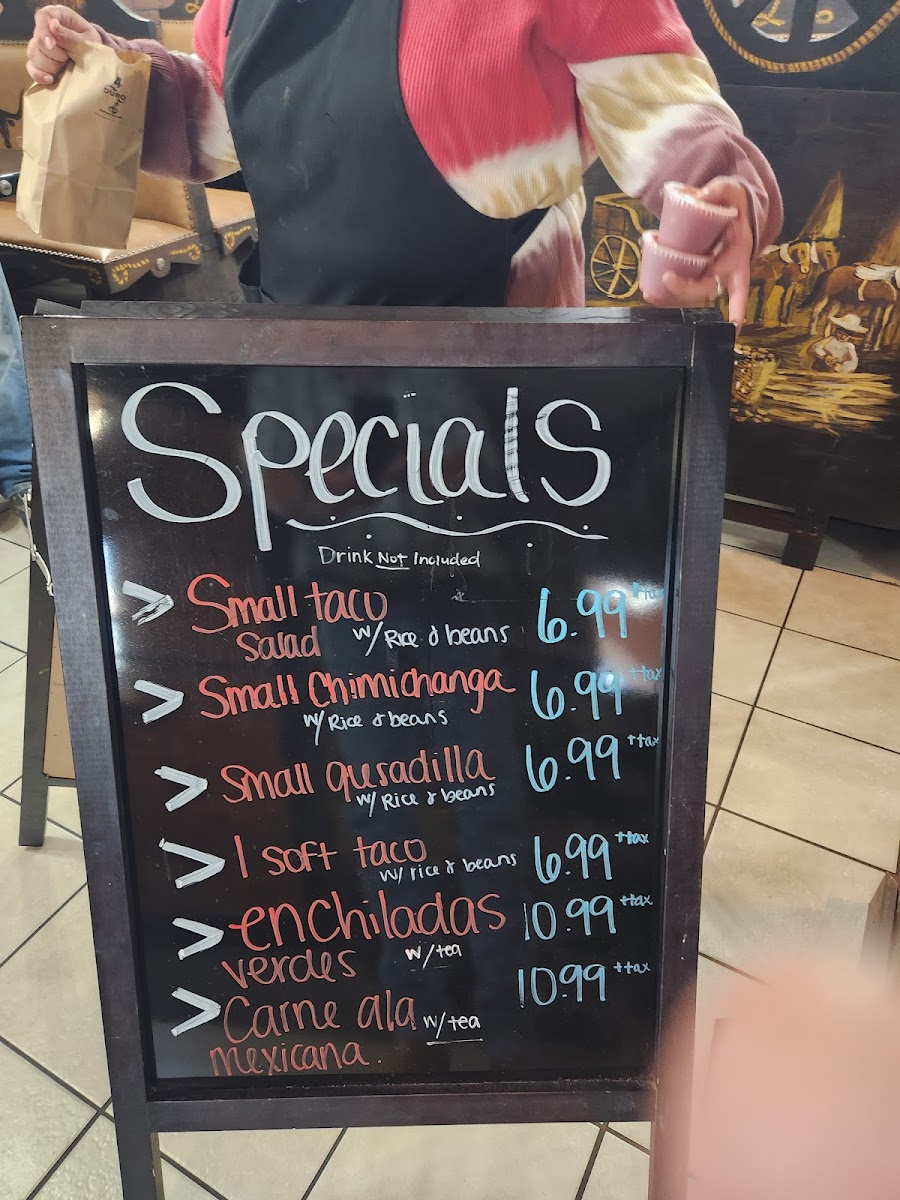 Specials
Drink Not Included
> Small taco 6.99 +tax
Salad w/ Rice & beans
> Small Chimichanga 6.99 +tax
w/ Rice & beans
> Small qusadilla 6.99 +tax
w/ Rice & beans
> 1 soft taco 6.99 +tax
w/ rice & beans
> enchiladas 10.99 +tax
verdes w/tea
> Carne ala w/tea 10.99 +tax
mexicana.